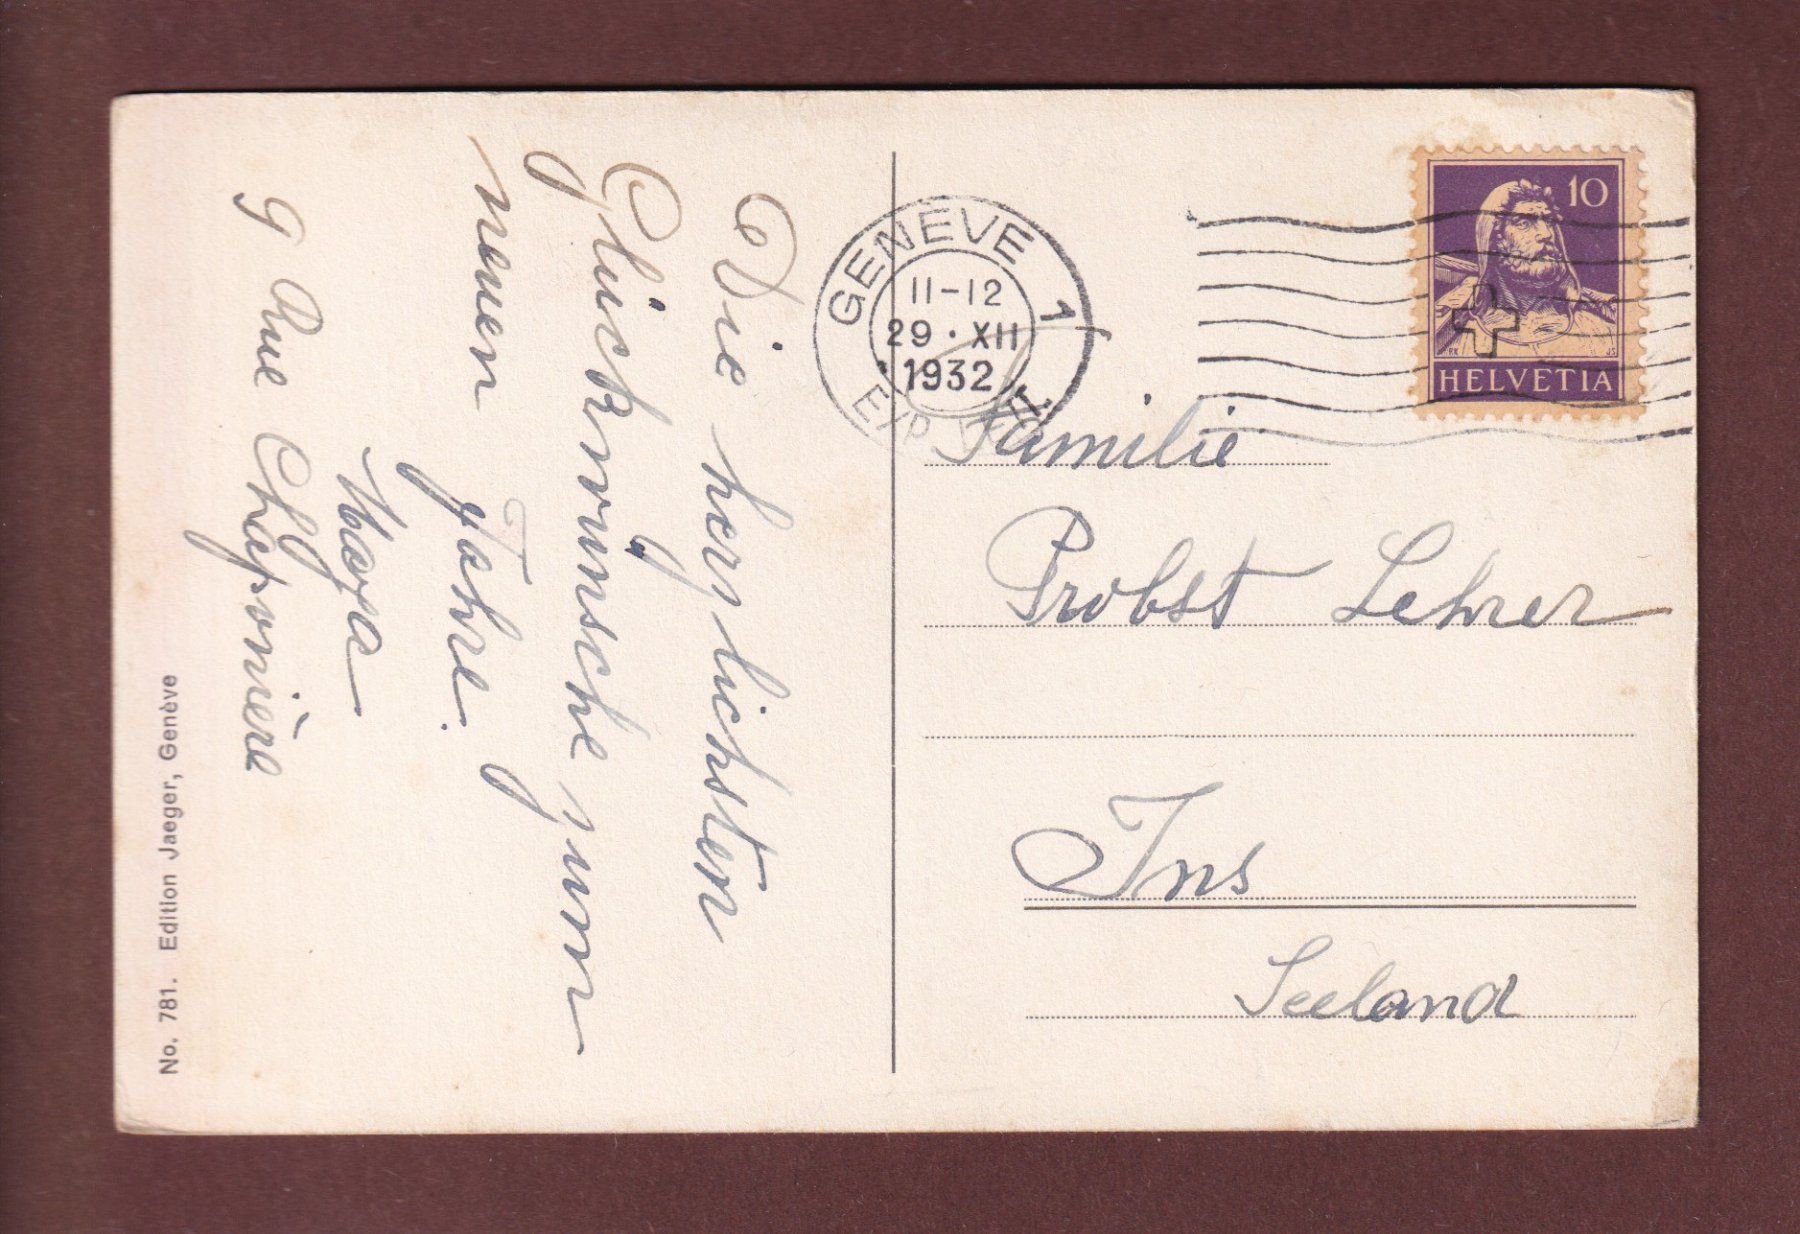 Die herzlichsten
Glückwünsche zum
neuen
Jahre.
Maya
9 Rue Chaponnière
No. 781. Edition Jaeger, Genève
GENÈVE 1
11-12
29 · XII
1932
EXP. LET.
10
HELVETIA
Familie
Probst Lehrer
Ins
Seeland